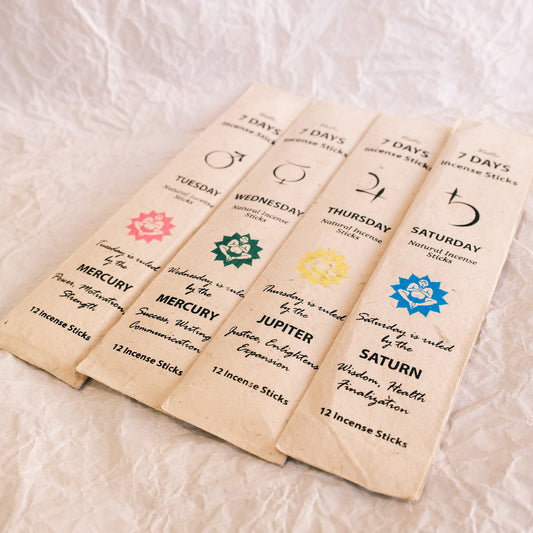 7 DAYS
Incense Sticks
TUESDAY
Natural Incense
Sticks
Tuesday is ruled
by the
MERCURY
Power, Motivation,
Strength
12 Incense Sticks
7 DAYS
Incense Sticks
WEDNESDAY
Natural Incense
Sticks
Wednesday is ruled
by the
MERCURY
Success, Writing
Communication
12 Incense Sticks
7 DAYS
Incense Sticks
THURSDAY
Natural Incense
Sticks
Thursday is ruled
by the
JUPITER
Justice, Enlighten
Expansion
12 Incense Sticks
7 DAYS
Incense Sticks
SATURDAY
Natural Incense
Sticks
Saturday is ruled
by the
SATURN
Wisdom, Health
Finalization
12 Incense Sticks